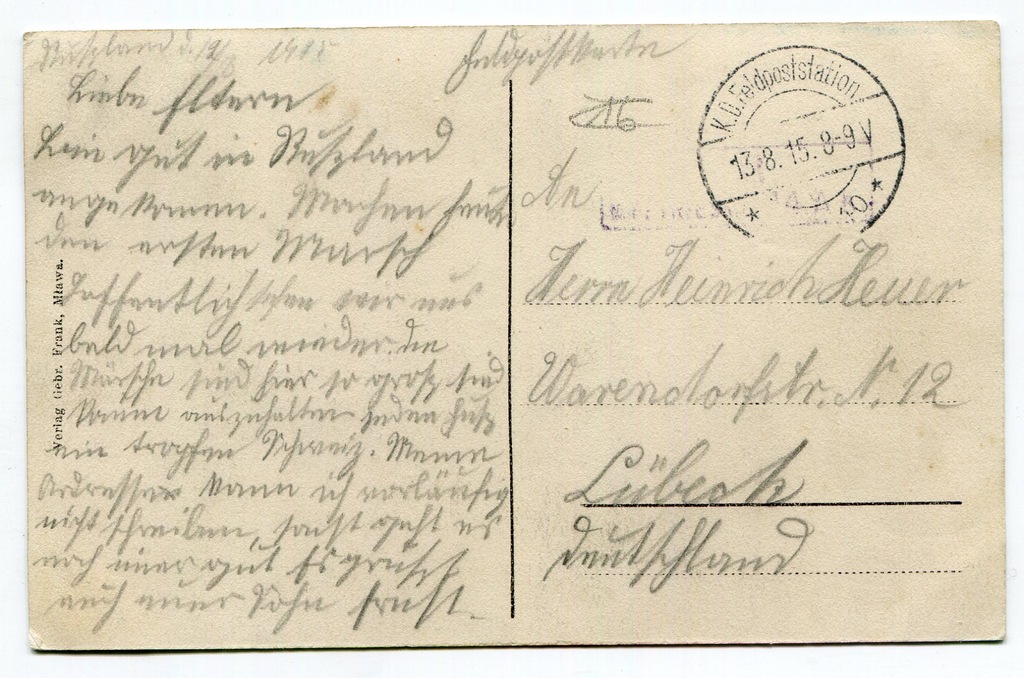 Rußland d. 12/8 1915
Feldpostkarte
Liebe Eltern
Bin gut in Rußland
angekomen. Machen heut
den ersten Marsch
hoffentlich sehen wir uns
bald mal wieder. die
Märsche sind hier so groß, sind
kaum auszuhalten jeden Fuß
ein tropfen Schweiz. Meine
Adresse kann ich vorläufig
nicht schreiben, sonst geht es
noch imer gut. Es grüßt
euch euer Sohn Ernst.
Verlag Gebr. Frank, Mława.
K.D. Feldpoststation
13.8.15. 8-9 V
* 10 *
16
An
Herrn Heinrich Heuer
Warendorfstr. N. 12
Lübeck
Deutschland